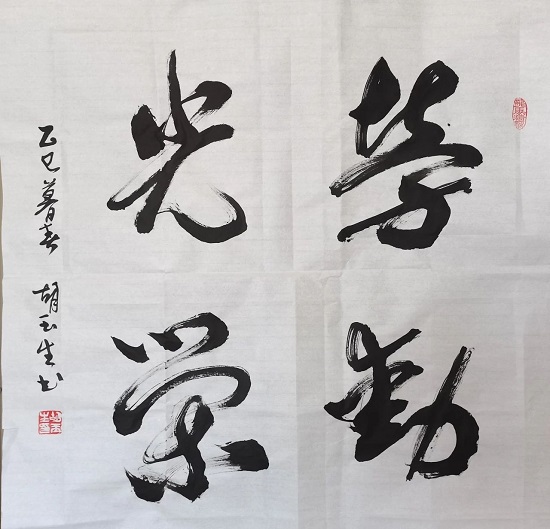 劳动
光荣
乙巳暮春 胡玉生书